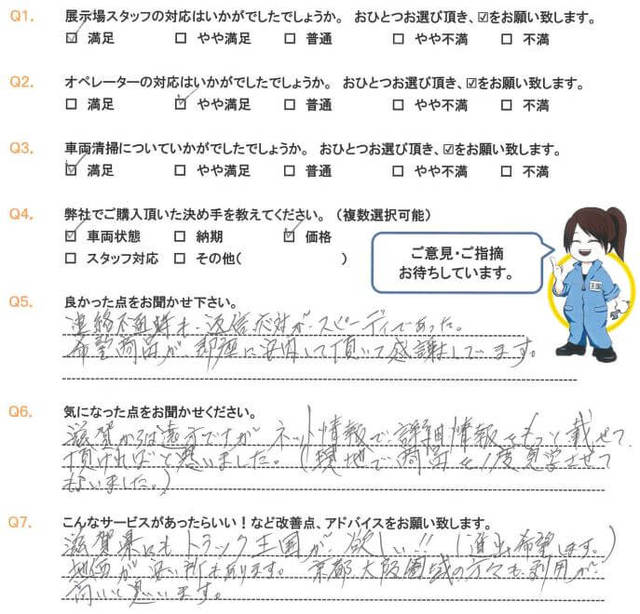 Q1. 展示場スタッフの対応はいかがでしたでしょうか。 おひとつお選び頂き、☑をお願い致します。
☑ 満足 □ やや満足 □ 普通 □ やや不満 □ 不満
Q2. オペレーターの対応はいかがでしたでしょうか。 おひとつお選び頂き、☑をお願い致します。
□ 満足 ☑ やや満足 □ 普通 □ やや不満 □ 不満
Q3. 車両清掃についていかがでしたでしょうか。 おひとつお選び頂き、☑をお願い致します。
☑ 満足 □ やや満足 □ 普通 □ やや不満 □ 不満
Q4. 弊社でご購入頂いた決め手を教えてください。（複数選択可能）
☑ 車両状態 □ 納期 ☑ 価格
□ スタッフ対応 □ その他（ ）
ご意見・ご指摘
お待ちしています。
Q5. 良かった点をお聞かせ下さい。
連絡 返信応対が、スピーディであった。
希望商品が 即座に 頂いて感謝しています。
Q6. 気になった点をお聞かせください。
滋賀からは遠方ですが ネット情報で、詳細情報をもっと載せて
頂ければと思いました。（現地で商品を1度見学させて
もらいました。）
Q7. こんなサービスがあったらいい！など改善点、アドバイスをお願い致します。
滋賀県にもトラック王国が、欲しい!!（進出希望します。）
地価が安い所もあります。 京都大阪圏域の方々も利用が
高いと思います。